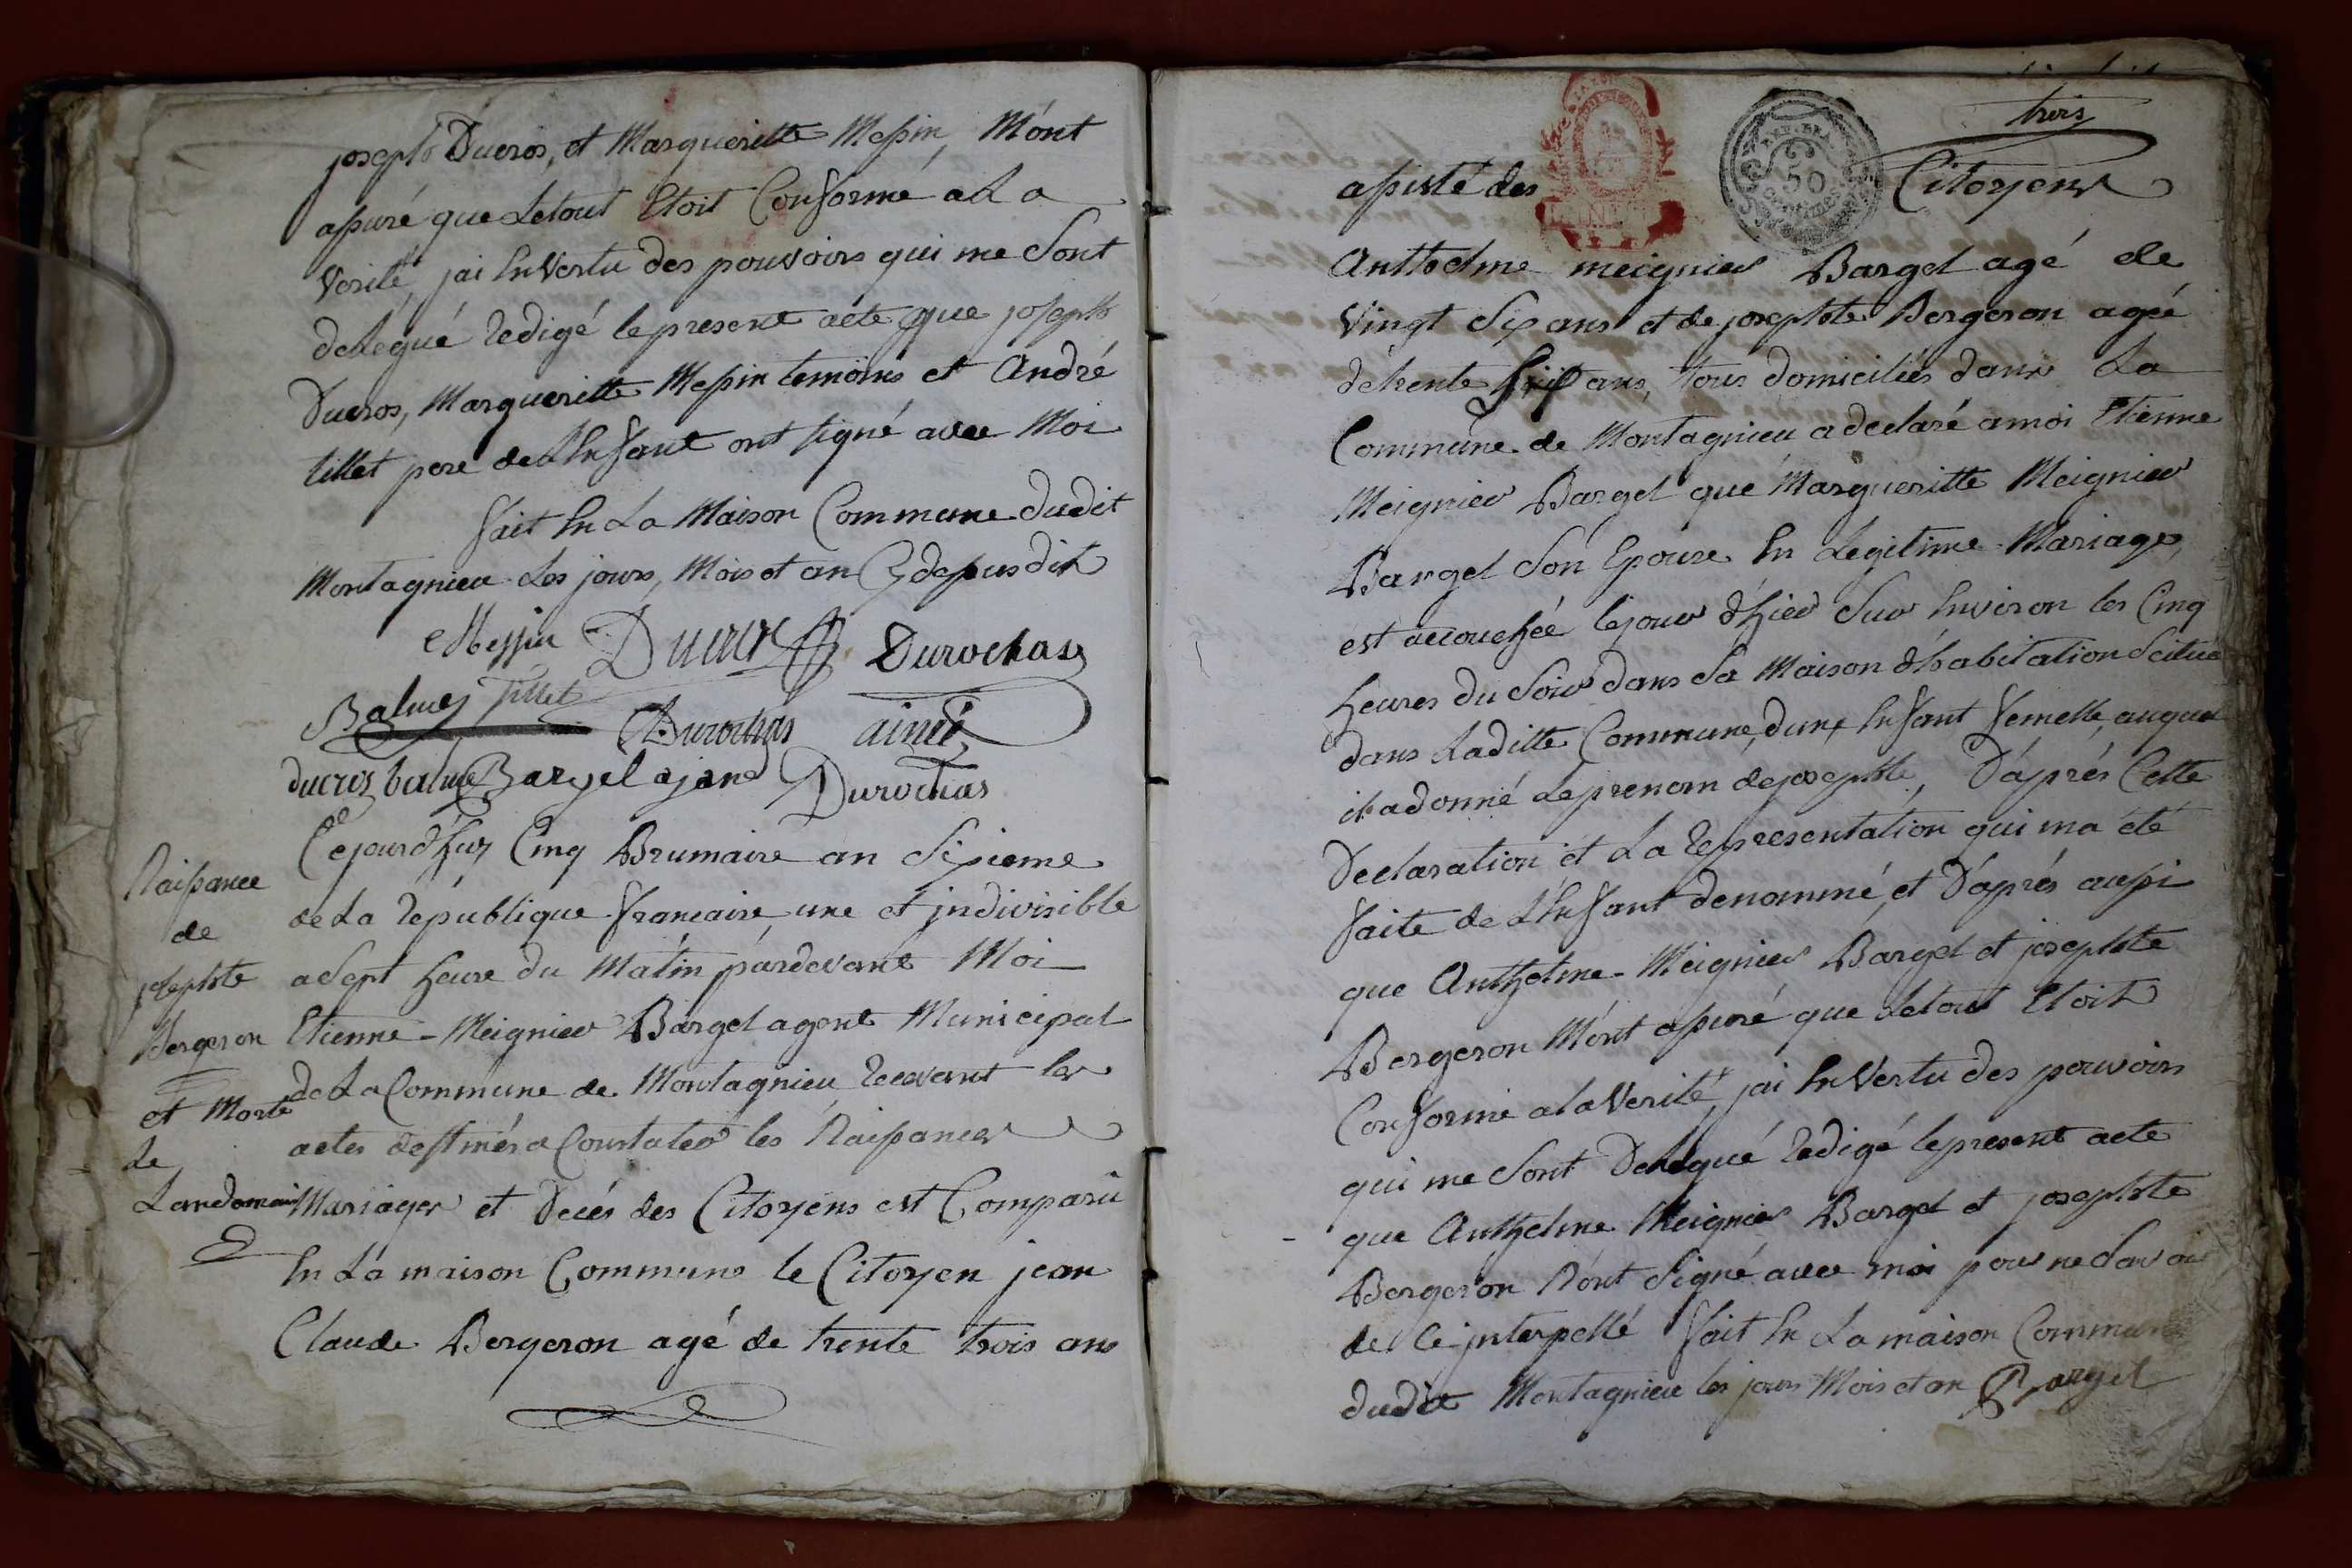 joseph Ducros, et Margueritte Messin, M'ont
assuré que Letout Etoit Conforme a La
Verité, jai En Vertu des pouvoirs qui me Sont
deLegué Redigé le present acte que joseph
Ducros, Margueritte Messin temoins et André
tillet pere de LEnfant ont signé avec Moi
fait En La Maison Commune dudit
Montagnieu Les jours, Mois et an Cy dessus dit
Messin Ducros Durochas
Balmes tillet Durochas ainé
ducros balme Bargel agend Durochas
Cejourd'huy Cinq Brumaire an Sixieme
de La République francaise, une et jndivisible
a Sept heure du Matin pardevant Moi
Etienne Meignier Bargel agent Municipal
de La Commune de Montagnieu Recevant les
actes destinés a Constater les Naissances
Mariages et Decés des Citoyens est Comparû
En La maison Commune le Citoyen jean
Claude Bergeron agé de trente trois ans
Naissance
de
josephte
Bergeron
et Morte
Le
Landemain
trois
assisté des Citoyens
50
Centimes
Anthelme meignier Bargel agé de
Vingt Six ans et de josephte Bergeron agée
de trente huit ans, tous domiciliés dans La
Commune de Montagnieu a declaré a moi Etienne
Meignier Bargel que Margueritte Meignier
Bargel Son Epouse En Legitime Mariage,
est accouchée le jour d'hier Sur Environ les Cinq
heures du Soir dans Sa Maison d'habitation Scitué
dans Laditte Commune, dune Enfant femelle, auquel
il a donné Le prenom de josephte, D'aprés Cette
Declaration et La Representation qui ma été
faite de LEnfant denommé, et D'aprés aussi
que Anthelme Meignier Bargel et josephte
Bergeron M'ont assuré que Letout Etoit
Conforme a la Verité, jai En Vertu des pouvoirs
qui me Sont Delegué Redigé le present acte
que Anthelme Meignier Bargel et josephte
Bergeron N'ont Signé avec moi pour ne Savoir
de Ce jnterpellé fait En La maison Commune
dudit Montagnieu les jours Mois et an Bargel